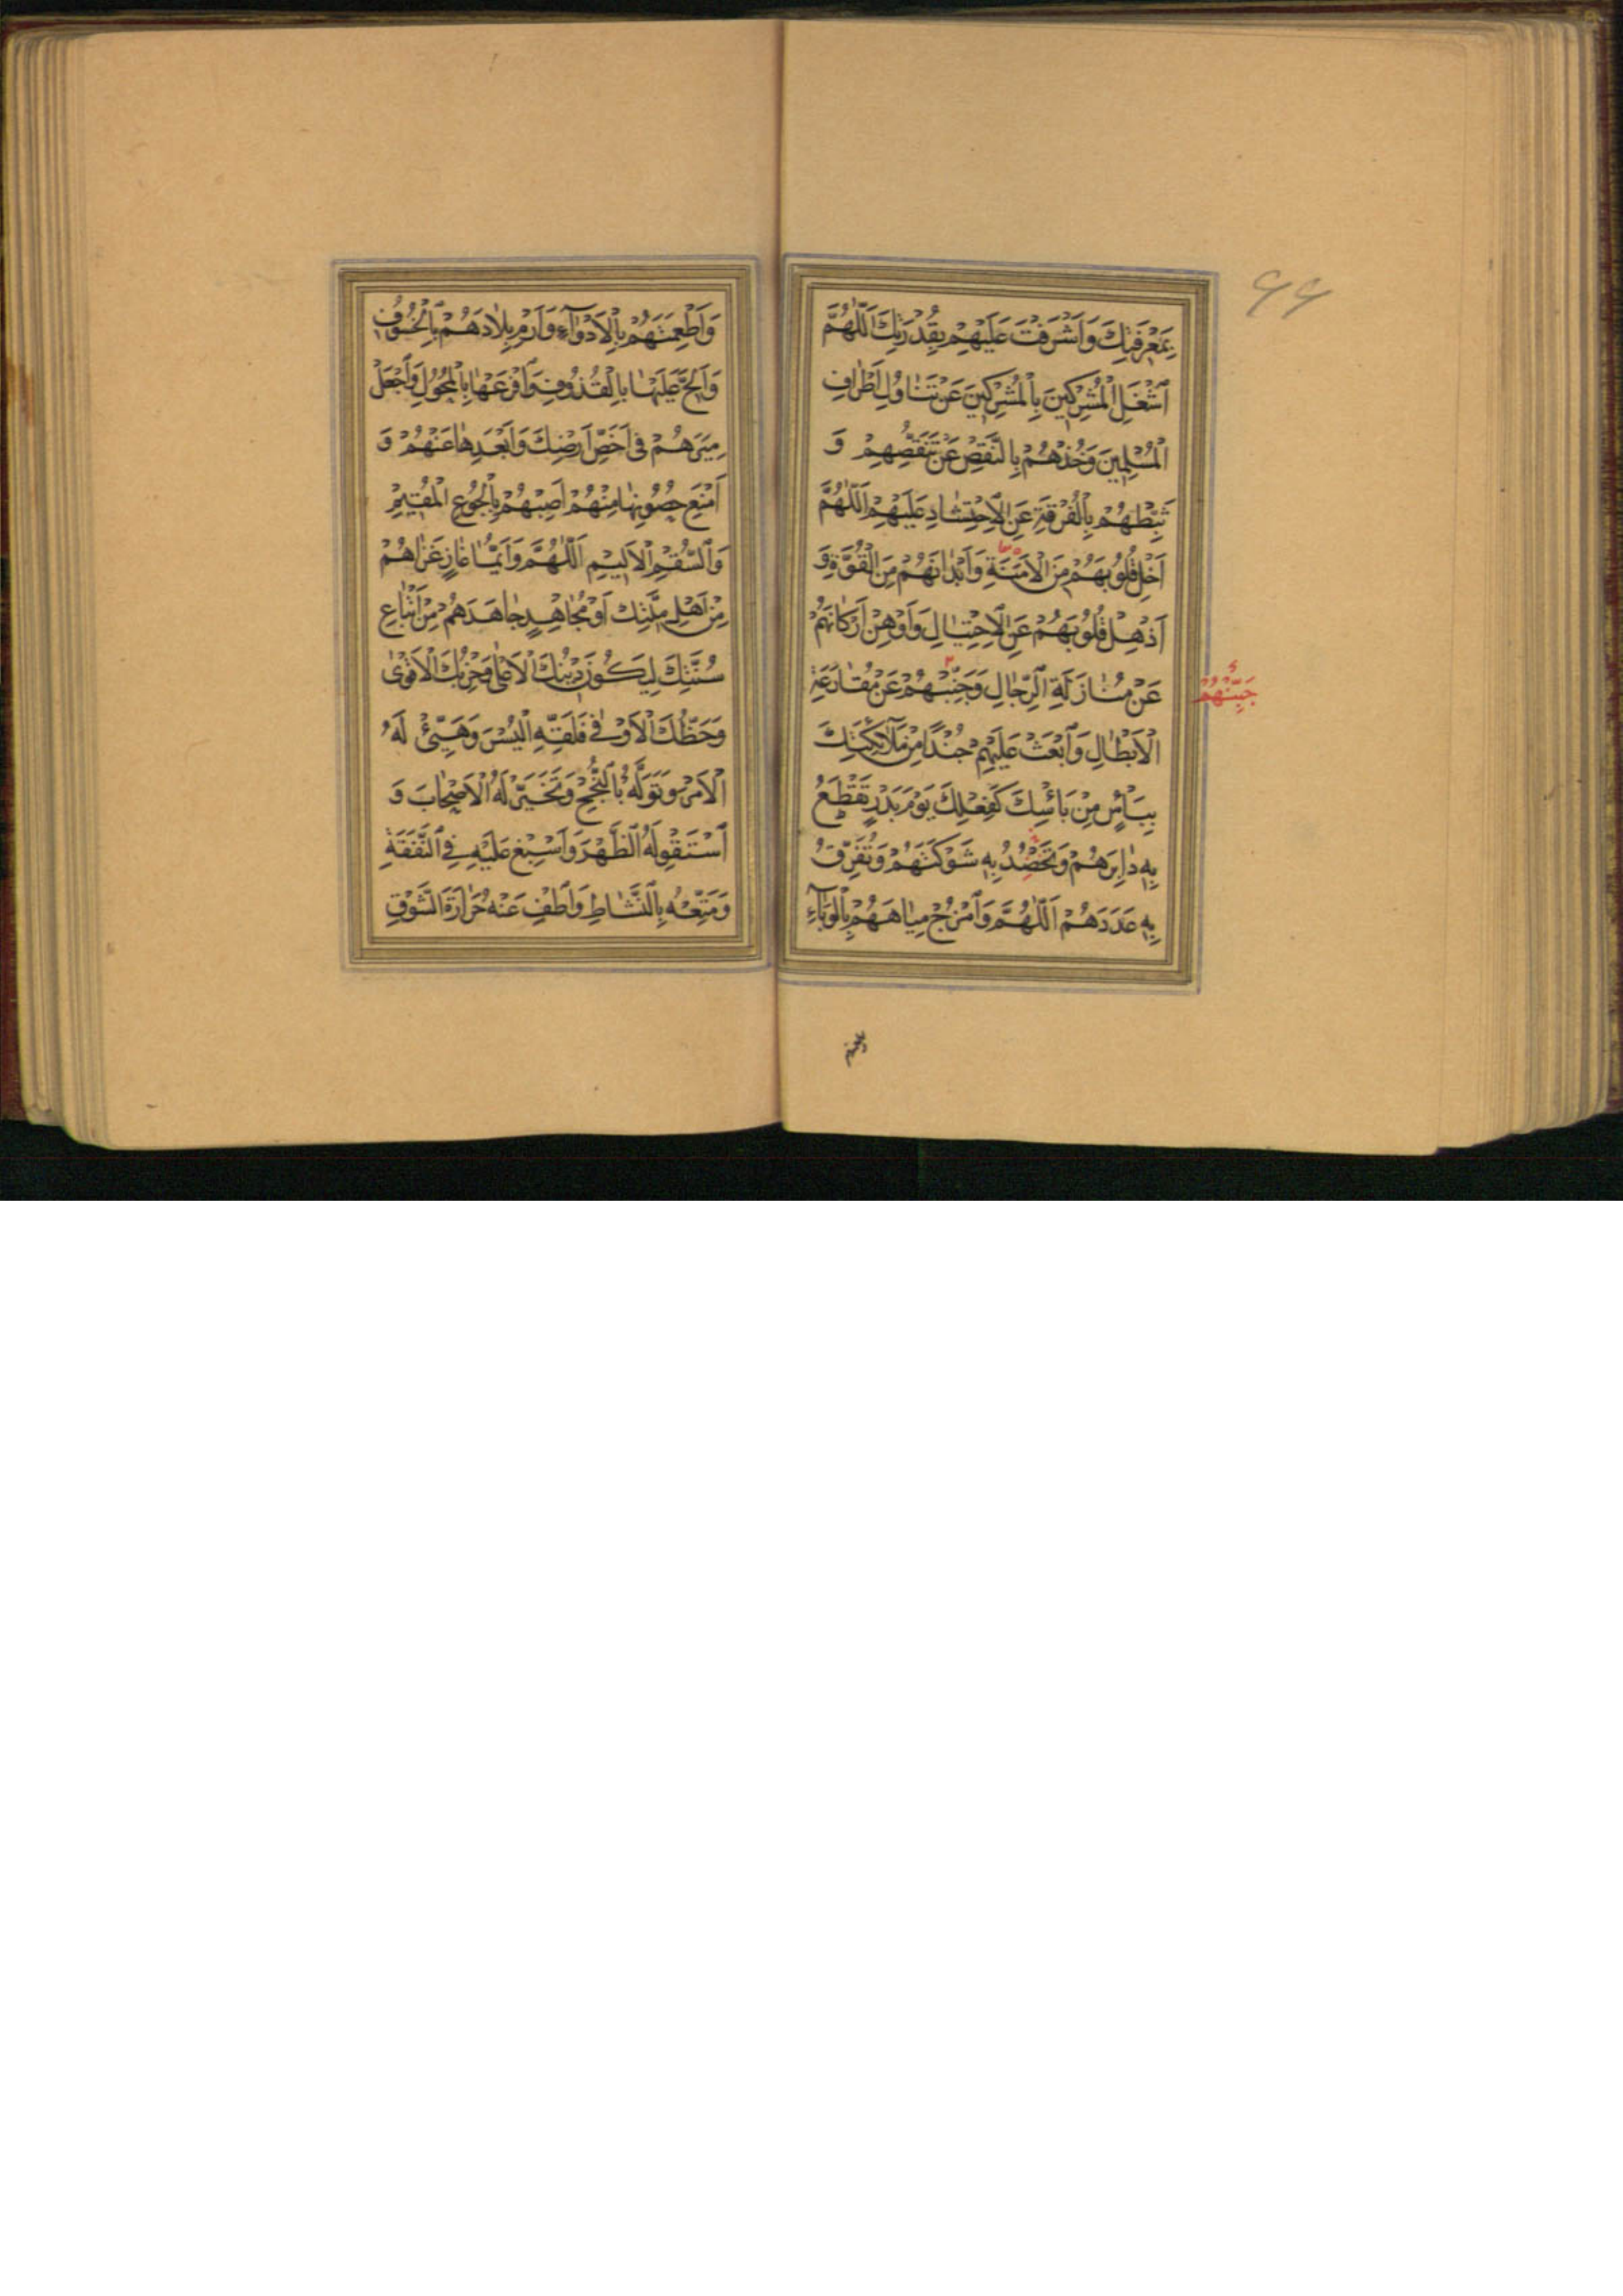 ۶۶
بِمَعْرِفَتِكَ وَاَشْرَفْتَ عَلَيْهِمْ بِقُدْرَتِكَ اَللّٰهُمَّ
اشْغَلِ الْمُشْرِكِينَ بِالْمُشْرِكِينَ عَنْ تَنَاوُلِ اَطْرَافِ
الْمُسْلِمِينَ وَخُذْهُمْ بِالنَّقْصِ عَنْ تَنَقُّصِهِمْ وَ
ثَبِّطْهُمْ بِالْفُرْقَةِ عَنِ الْاِحْتِشَادِ عَلَيْهِمْ اَللّٰهُمَّ
اَخْلِ قُلُوبَهُمْ مِنَ الْاَمَنَةِ وَاَبْدَانَهُمْ مِنَ الْقُوَّةِ وَ
اَذْهِلْ قُلُوبَهُمْ عَنِ الْاِحْتِيَالِ وَاَوْهِنْ اَرْكَانَهُمْ
عَنْ مُنَازَلَةِ الرِّجَالِ وَجَنِّبْهُمْ عَنْ مُقَارَعَةِ
جَبِّنْهُمْ
الْاَبْطَالِ وَابْعَثْ عَلَيْهِمْ جُنْدًا مِنْ مَلَآئِكَتِكَ
بِبَاْسٍ مِنْ بَاْسِكَ كَفِعْلِكَ يَوْمَ بَدْرٍ تَقْطَعُ
بِهِ دَابِرَهُمْ وَتَحْصُدُ بِهِ شَوْكَتَهُمْ وَتُفَرِّقُ
بِهِ عَدَدَهُمْ اَللّٰهُمَّ وَامْزُجْ مِيَاهَهُمْ بِالْوَبَآءِ
وَاَطْعِمَتَهُمْ بِالْاَدْوَآءِ وَارْمِ بِلَادَهُمْ بِالْخُسُوفِ
وَاَلِحَّ عَلَيْهَا بِالْقُذُوفِ وَافْرَعْهَا بِالْمُحُولِ وَاجْعَلْ
مِيَرَهُمْ فِى اَحَصِّ اَرْضِكَ وَاَبْعَدِهَا عَنْهُمْ وَ
امْنَعْ حُصُونَهَا مِنْهُمْ اَصِبْهُمْ بِالْجُوعِ الْمُقِيمِ
وَالسُّقْمِ الْاَلِيمِ اَللّٰهُمَّ وَاَيُّمَا غَازٍ غَزَاهُمْ
مِنْ اَهْلِ مِلَّتِكَ اَوْ مُجَاهِدٍ جَاهَدَهُمْ مِنْ اَتْبَاعِ
سُنَّتِكَ لِيَكُونَ دِينُكَ الْاَعْلٰى وَحِزْبُكَ الْاَقْوٰى
وَحَظُّكَ الْاَوْفٰى فَلَقِّهِ الْيُسْرَ وَهَيِّئْ لَهُ
الْاَمْرَ وَتَوَلَّهُ بِالنُّجْحِ وَتَخَيَّرْ لَهُ الْاَصْحَابَ وَ
اسْتَقْوِ لَهُ الظَّهْرَ وَاَسْبِغْ عَلَيْهِ فِى النَّفَقَةِ
وَمَتِّعْهُ بِالنَّشَاطِ وَاَطْفِ عَنْهُ حَرَارَةَ الشَّوْقِ